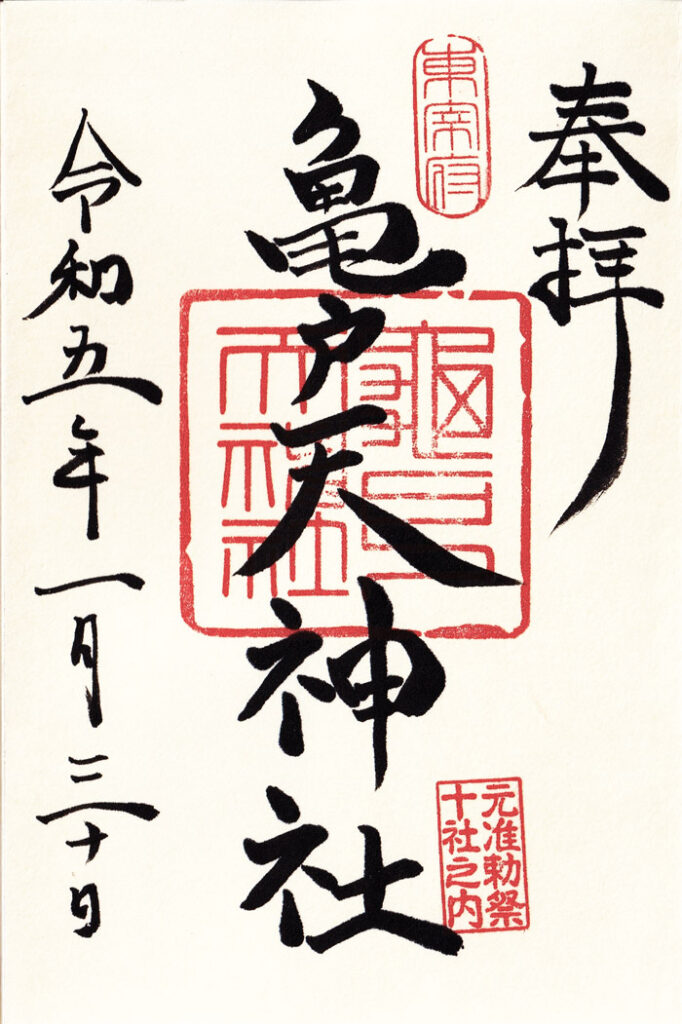 奉拝
東宰府
亀戸天神社
亀戸天神社
元准勅祭
十社之内
令和五年一月三十日